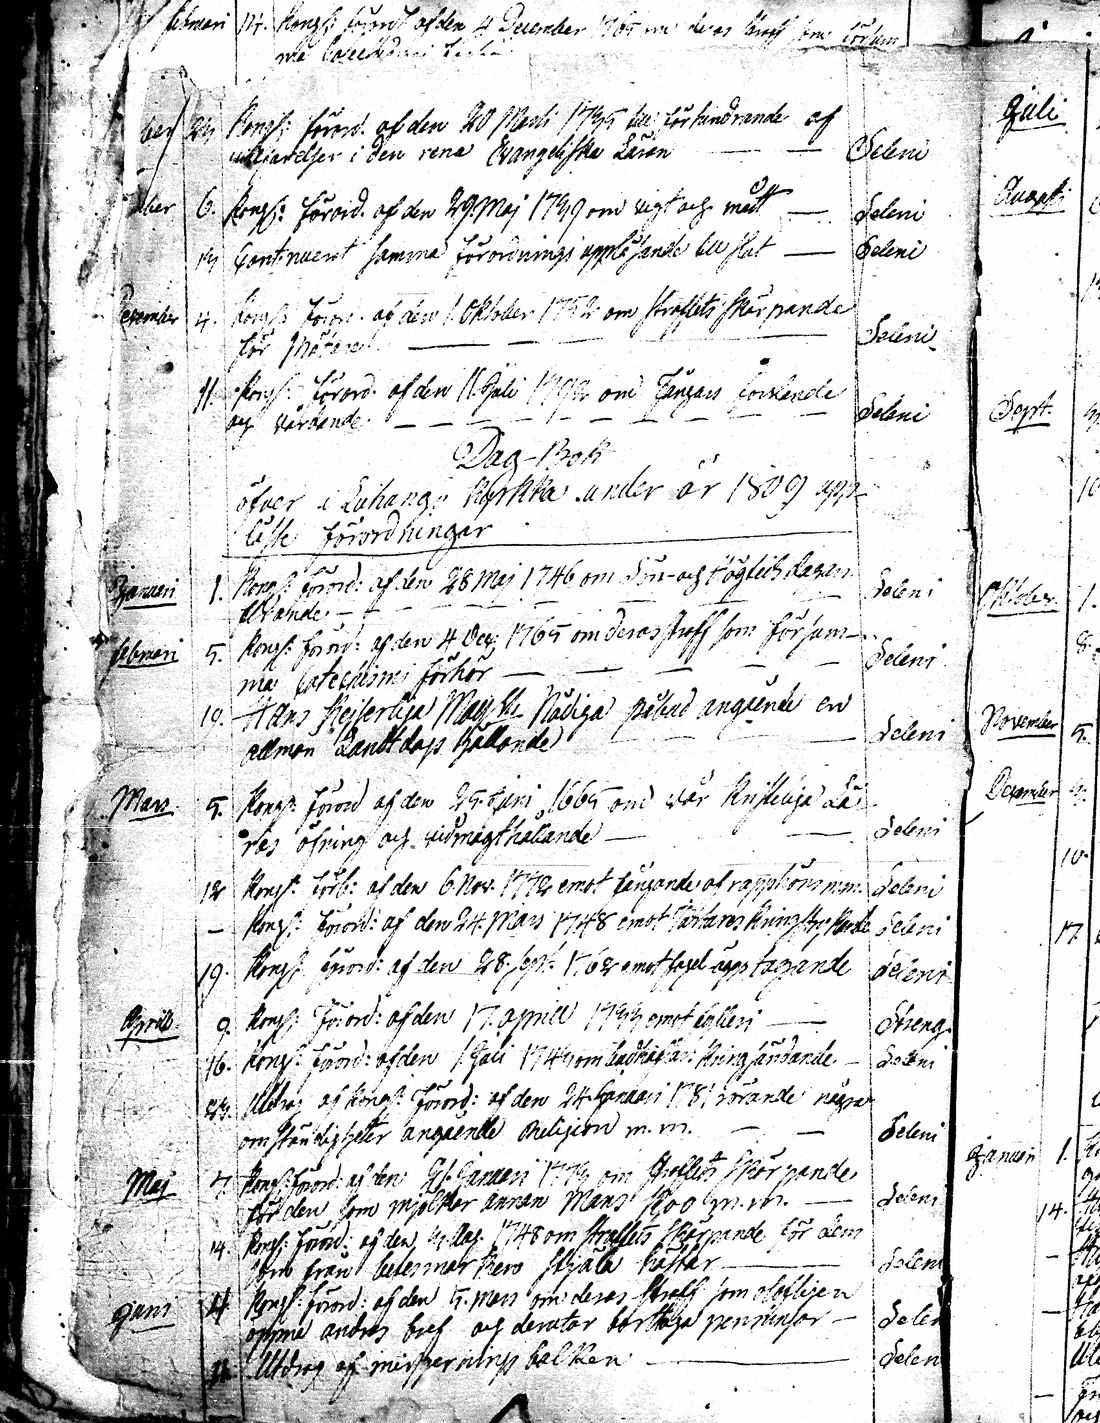 februari 14. Kongl: förord afden 4 December 1765 om deras straff som försum
ma Catechismi
ber 23 Kongl: förord: af den 20 Marti 1735 till förhindrande af
villfarelser i den rena Evangeliska Läran — — Seleni
ber 6. Kongl: Förord. af den 29. Maj 1739 om vigt och mått — Seleni
13 Continuerat samma Förordnings uppläsande till slut — Seleni
December 4. Kongl: Förord: af den 1. Oktober 1752 om straffets skärpande
för — — — Seleni
11. Kongl: Förord: af den 11. Juli om Fångars forslende
och vårdande — — — Seleni
Dag-Bok
öfver i Luhango Kyrkka under år 1809 upp-
läste Förordningar
Januari 1. Kongl: Förord: af den 28 Maj 1746 om Sön- och Högtids dagars
firande — — — Seleni
februari 5. Kongl: Förord: af den 4 Dec: 1765 om deras straff som försum-
ma Catechismi förhör — — — Seleni
10. Hans Kejserliga Maj:sts Nådiga påbud angående en
allmän Landtdags hållande — — Seleni
Mars 5. Kongl: Förord af den 25. Juni 1665 om vår Kristeliga Lä
ras öfning och vidmagthållande — — Seleni
12 Kongl: Förb: af den 6 Nov. 1772 emot fångande af rapphöns m.m. Seleni
— Kongl: Förord: af den 24. Mars 1748 emot Tartares kringstrykande Seleni
19. Kongl: Förord: af den 28. Sept. 1762 emot fogel äggs tagande Seleni
Aprill 9. Kongl: Förord: af den 17. aprill 1733 emot — Streng
16. Kongl: Förord: af den 1. Juli kringsändande — Seleni
23. Utdrag af Kongl: Förord: af den 24. Januari 1781 rörande några
omständigheter angående Religion m.m. — — Seleni
Maj 7. Kongl: Förord: af den 21. Januari om Straffets skärpande
för den som mjölkar annan Mans Ko m.m. — Seleni
14. Kongl: Förord: af den 1748 om straffets skärpande för dem
som från betesmarken stjäla hästar — Seleni
Juni 4 Kongl: Förord: af den 5. Mars om deras straff som olofligen
öppna andras bref och derutur borttaga penningar — Selen
11. Utdrag af missgernings balken — Selen
Juli
Augusti
Sept.
10
Oktober 1.
8.
November 5.
December
10.
17.
Januari 1.
14.